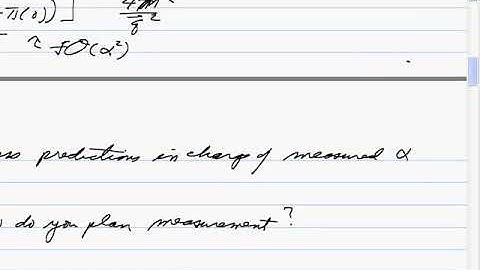 -π(0))]
4m²
q²
~ + O(α²)
predictions in charge of measured α
do you plan measurement?